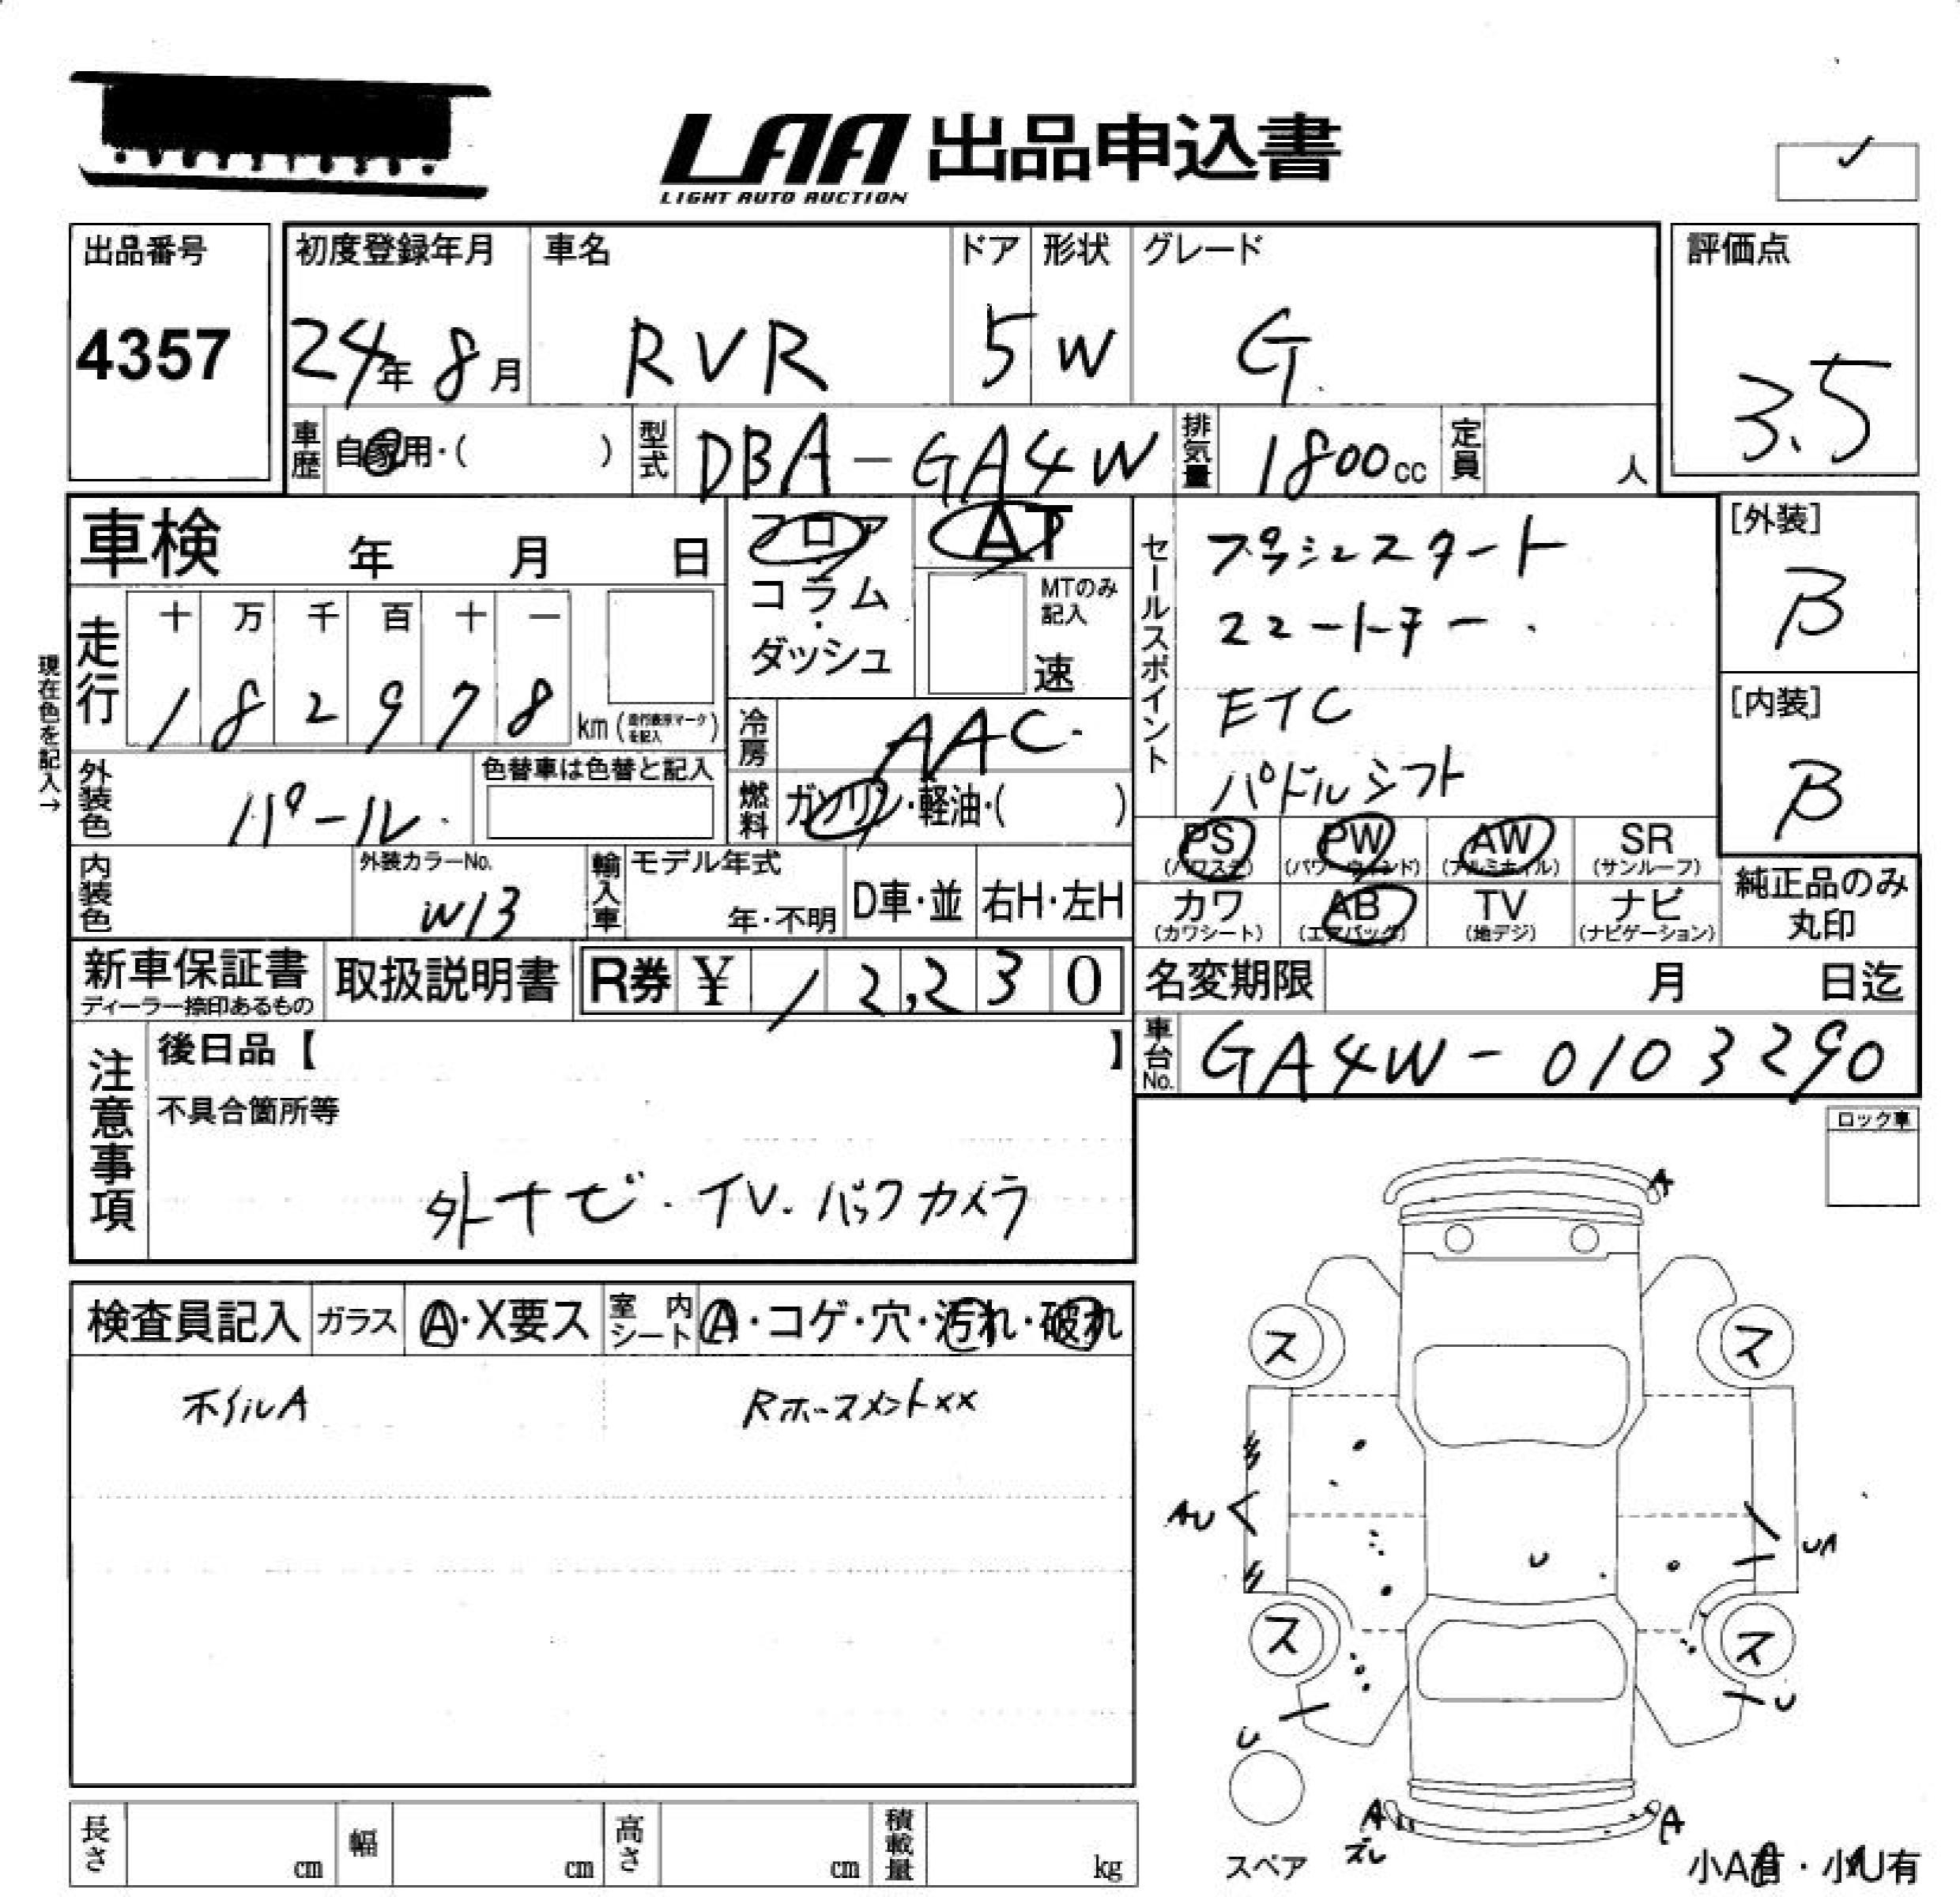 LAA 出品申込書
LIGHT AUTO AUCTION
出品番号 初度登録年月 車名 ドア 形状 グレード 評価点
4357 24年 8月 RVR 5 W G 3.5
車歴 自家用・( ) 型式 DBA-GA4W 排気量 1800cc 定員 人
車検 年 月 日 フロア AT
コラム・ダッシュ MTのみ記入 速
セールスポイント プッシュスタート
スマートキー
ETC
パドルシフト
[外装] B
[内装] B
現在色を記入→
走行 十 万 千 百 十 一
1 8 2 9 7 8 km (走行表示マークを記入)
冷房 AAC
外装色 パール 色替車は色替と記入 燃料 ガソリン・軽油・( )
PS (パワステ) PW (パワーウィンド) AW (アルミホイル) SR (サンルーフ)
カワ (カワシート) AB (エアバッグ) TV (地デジ) ナビ (ナビゲーション)
純正品のみ丸印
内装色 外装カラーNo. W13 輸入車 モデル年式 年・不明 D車・並 右H・左H
新車保証書 ディーラー捺印あるもの 取扱説明書 R券 ¥ 12,230 名変期限 月 日迄
車台No. GA4W-0103290
注意事項 後日品【 】
不具合箇所等
外ナビ・TV.バックカメラ
ロック車
検査員記入 ガラス A・X要ス 室内シート A・コゲ・穴・汚れ・破れ
ホイルA Rホースメント××
A
ス ス
AU UA
U
ス ス
U U
A A
ズレ
スペア 小A有・小U有
長さ cm 幅 cm 高さ cm 積載量 kg